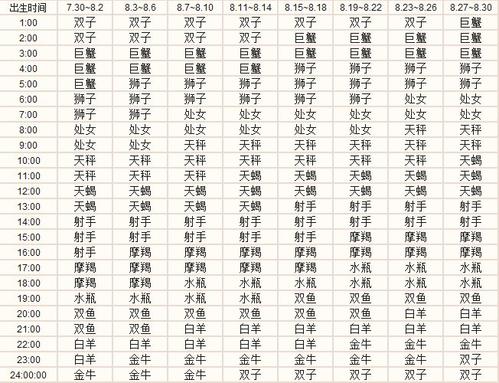 出生时间 7.30~8.2 8.3~8.6 8.7~8.10 8.11~8.14 8.15~8.18 8.19~8.22 8.23~8.26 8.27~8.30
1:00 双子 双子 双子 双子 双子 双子 双子 巨蟹
2:00 双子 双子 双子 双子 巨蟹 巨蟹 巨蟹 巨蟹
3:00 巨蟹 巨蟹 巨蟹 巨蟹 巨蟹 巨蟹 巨蟹 巨蟹
4:00 巨蟹 巨蟹 巨蟹 巨蟹 狮子 狮子 狮子 狮子
5:00 巨蟹 狮子 狮子 狮子 狮子 狮子 狮子 狮子
6:00 狮子 狮子 狮子 狮子 狮子 狮子 处女 处女
7:00 狮子 狮子 处女 处女 处女 处女 处女 处女
8:00 处女 处女 处女 处女 处女 处女 天秤 天秤
9:00 处女 处女 天秤 天秤 天秤 天秤 天秤 天秤
10:00 天秤 天秤 天秤 天秤 天秤 天秤 天秤 天蝎
11:00 天秤 天秤 天秤 天蝎 天蝎 天蝎 天蝎 天蝎
12:00 天蝎 天蝎 天蝎 天蝎 天蝎 天蝎 天蝎 天蝎
13:00 天蝎 天蝎 天蝎 天蝎 射手 射手 射手 射手
14:00 射手 射手 射手 射手 射手 射手 射手 射手
15:00 射手 射手 射手 射手 射手 摩羯 摩羯 摩羯
16:00 射手 摩羯 摩羯 摩羯 摩羯 摩羯 摩羯 摩羯
17:00 摩羯 摩羯 摩羯 摩羯 摩羯 水瓶 水瓶 水瓶
18:00 摩羯 摩羯 水瓶 水瓶 水瓶 水瓶 水瓶 水瓶
19:00 水瓶 水瓶 水瓶 水瓶 双鱼 双鱼 双鱼 双鱼
20:00 双鱼 双鱼 双鱼 双鱼 双鱼 双鱼 白羊 白羊
21:00 双鱼 双鱼 白羊 白羊 白羊 白羊 白羊 白羊
22:00 白羊 白羊 白羊 白羊 白羊 金牛 金牛 金牛
23:00 白羊 金牛 金牛 金牛 金牛 金牛 金牛 双子
24:00:00 金牛 金牛 金牛 双子 双子 双子 双子 双子